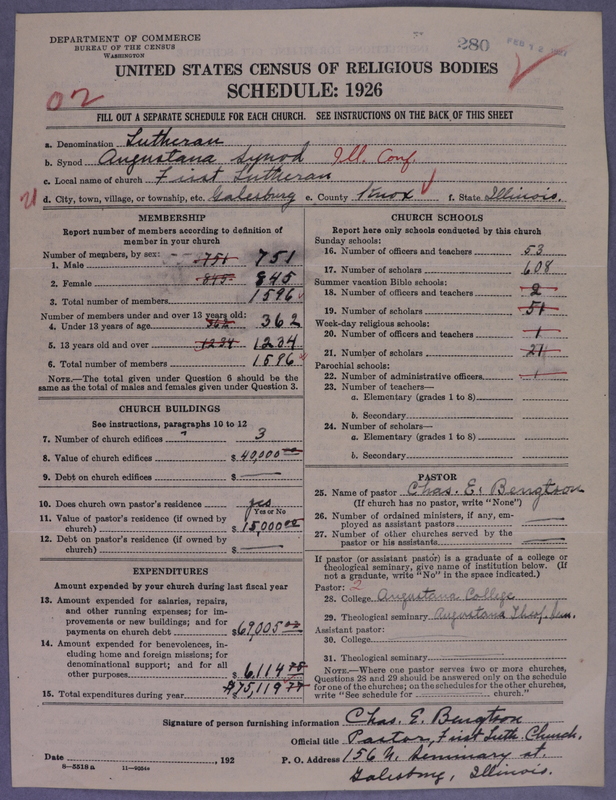 DEPARTMENT OF COMMERCE
BUREAU OF THE CENSUS
WASHINGTON
280
UNITED STATES CENSUS OF RELIGIOUS BODIES
SCHEDULE: 1926
FILL OUT A SEPARATE SCHEDULE FOR EACH CHURCH. SEE INSTRUCTIONS ON THE BACK OF THIS SHEET
a. Denomination Lutheran
b. Synod Augustana Synod Ill. Conf.
c. Local name of church First Lutheran
d. City, town, village, or township, etc. Galesburg e. County Knox f. State Illinois.
MEMBERSHIP
Report number of members according to definition of
member in your church
Number of members, by sex:
1. Male 751 751
2. Female 845 845
3. Total number of members 1596
Number of members under and over 13 years old:
4. Under 13 years of age 362 362
5. 13 years old and over 1234 1234
6. Total number of members 1596
NOTE.—The total given under Question 6 should be the
same as the total of males and females given under Question 3.
CHURCH BUILDINGS
See instructions, paragraphs 10 to 12
7. Number of church edifices 3
8. Value of church edifices $40,000 00
9. Debt on church edifices $ —
10. Does church own pastor's residence yes
Yes or No
11. Value of pastor's residence (if owned by
church) $15,000 00
12. Debt on pastor's residence (if owned by
church) $ —
EXPENDITURES
Amount expended by your church during last fiscal year
13. Amount expended for salaries, repairs,
and other running expenses; for im-
provements or new buildings; and for
payments on church debt $69,005
14. Amount expended for benevolences, in-
cluding home and foreign missions; for
denominational support; and for all
other purposes 6,114
15. Total expenditures during year $75,119
CHURCH SCHOOLS
Report here only schools conducted by this church
Sunday schools:
16. Number of officers and teachers 53
17. Number of scholars 608
Summer vacation Bible schools:
18. Number of officers and teachers 2
19. Number of scholars 51
Week-day religious schools:
20. Number of officers and teachers 1
21. Number of scholars 21
Parochial schools:
22. Number of administrative officers 1
23. Number of teachers—
a. Elementary (grades 1 to 8)
b. Secondary
24. Number of scholars—
a. Elementary (grades 1 to 8)
b. Secondary
PASTOR
25. Name of pastor Chas. E. Bengtson
(If church has no pastor, write "None")
26. Number of ordained ministers, if any, em-
ployed as assistant pastors —
27. Number of other churches served by the
pastor or his assistants —
If pastor (or assistant pastor) is a graduate of a college or
theological seminary, give name of institution below. (If
not a graduate, write "No" in the space indicated.)
Pastor: 2
28. College Augustana College
29. Theological seminary Augustana Theol. Sem.
Assistant pastor:
30. College
31. Theological seminary
NOTE.—Where one pastor serves two or more churches,
Questions 28 and 29 should be answered only on the schedule
for one of the churches; on the schedules for the other churches,
write "See schedule for church."
Signature of person furnishing information Chas. E. Bengtson
Official title Pastor, First Luth. Church.
Date , 192 P. O. Address 156 N. Seminary st
8—5518 a Galesburg, Illinois.